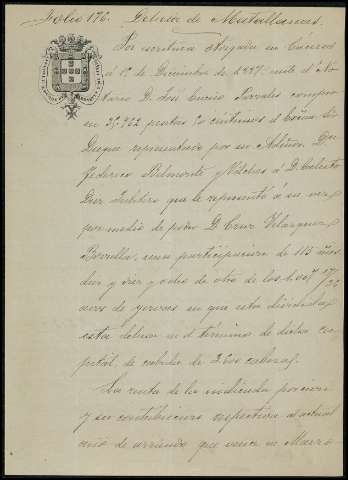 Folio 176. Dehesa de Matallanas.
Por escritura otorgada en Cáceres
á 1º de Diciembre de 1887 ante el No-
tario D. José Encio Parrales compró
en 35,752 pesetas 50 centimos el Exmo. Sr.
Duque representado por su Admor. Don
Federico Belmonte y Vilches á D. Celesto
Diez que le representó á su vez
por medio de poder D. Cruz Velazquez
Bonilla, una participacion de 115
diez y diez y de otro de los
de yerbas en que esta dividida
esta dehesa en el término de dicha ca-
pital, de cabida de 2.600 cabezas.
La renta de la indicada porcion
y su contribucion respectiva al actual
año de arriendo que vence en Marzo